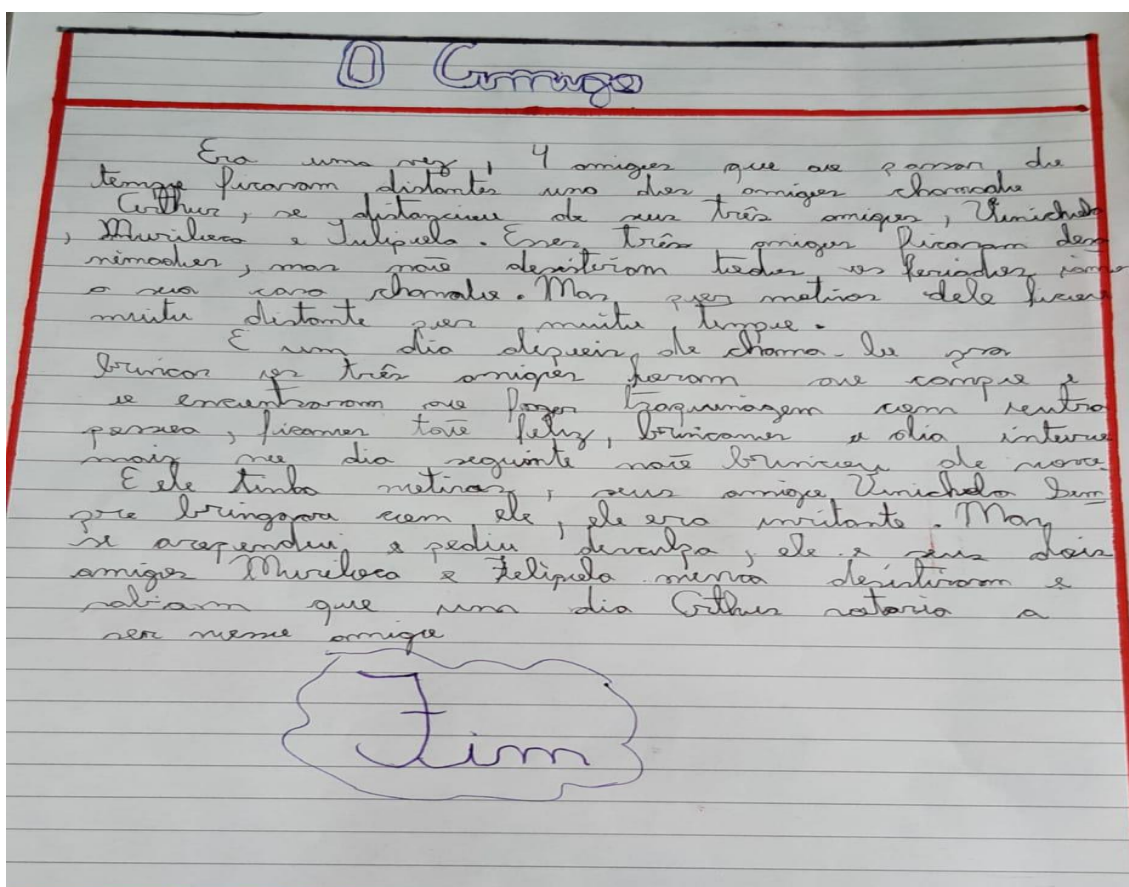 O Amigo
Era uma vez, 4 amigos que ao passar du
tempo ficaram distantes uno dos amigos chamado
Arthur, se distanciou de seus três amigos, Vinichola
, Muriloca e Felipela. Esses três amigos ficaram des
nimados, mas não desistiram todos os feriados iam
a sua casa chamalo. Mas, por motivos dele ficou
muitu distante por muitu tempo.
E um dia depois de chama-lo pra
brincar os três amigos foram ao campo e
se encontraram ao fazer com outra
pessoa, ficamos tão feliz, brincamos o dia inteiro
mais no dia seguinte não brincou de novo.
E ele tinha motivos, seus amigo Vinichola Sem
pre com ele, ele era irritante. Mas
se arependeu e pediu desculpa, ele e seus dois
amigos Muriloca e Felipela nunca desistiram e
sabiam que um dia Arthur votaria a
ser nosso amigo
Fim